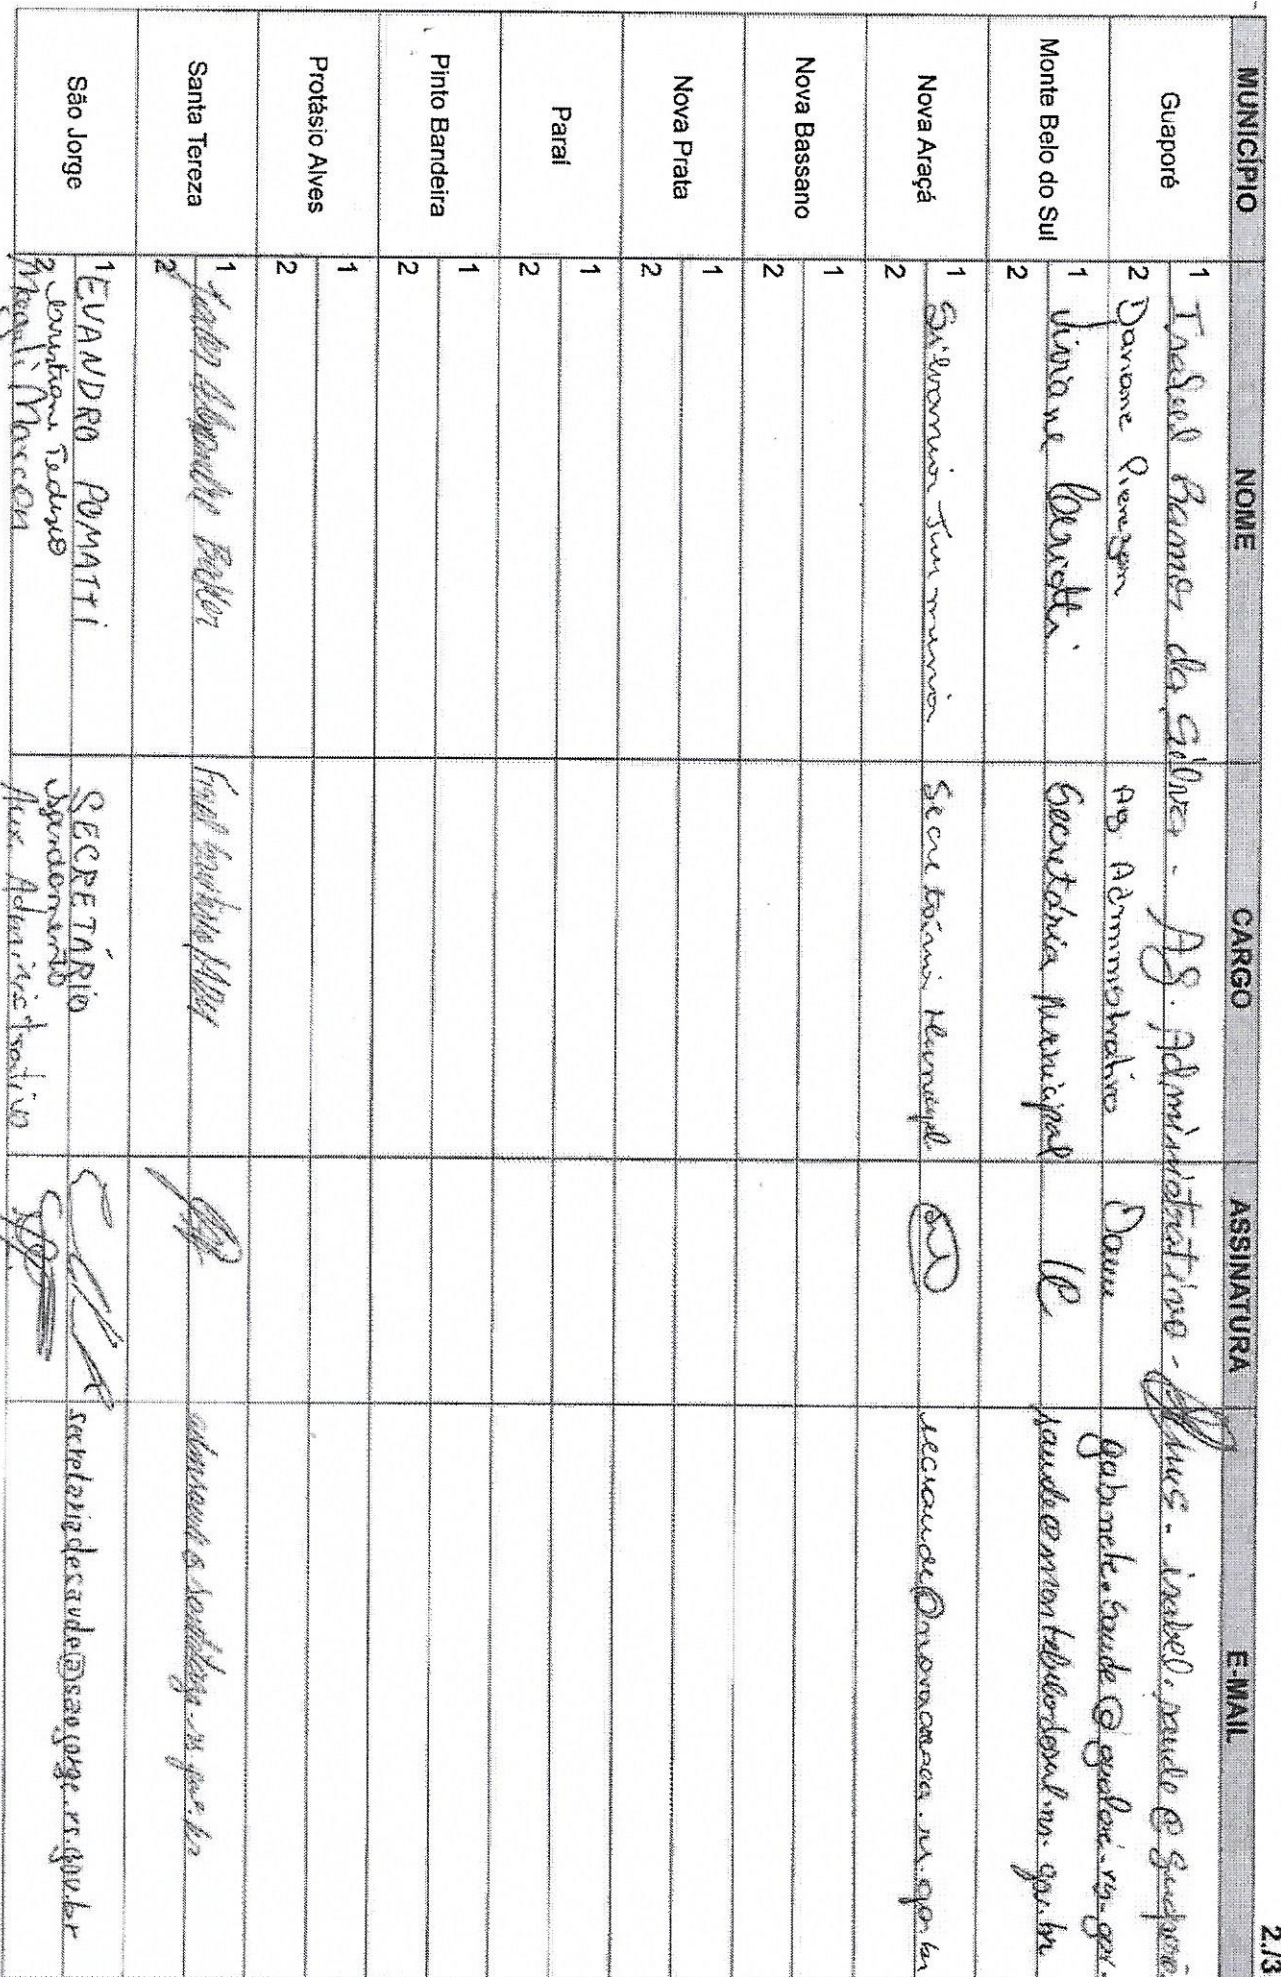 2./3
MUNICÍPIO NOME CARGO ASSINATURA E-MAIL
Guaporé 1 Isabel Ramos da Silva - Ag. Administrativo - isabel.saude@guaporé
2 Daniane Pierezan Ag Administrativo Dani gabinete.saude@guaporé.rs.gov.
Monte Belo do Sul 1 Viviane Secretária Municipal saude@montebelodosul.rs.gov.br
2
Nova Araçá 1 Silvania Secretária Municipal secsaude@novaaraca.rs.gov.br
2
Nova Bassano 1
2
Nova Prata 1
2
Paraí 1
2
Pinto Bandeira 1
2
Protásio Alves 1
2
Santa Tereza 1
2
São Jorge 1 EVANDRO POMATTI SECRETÁRIO secretariadesaude@saojorge.rs.gov.br
2 Cristiane Tedesco
Magali Marcon Aux. Administrativo